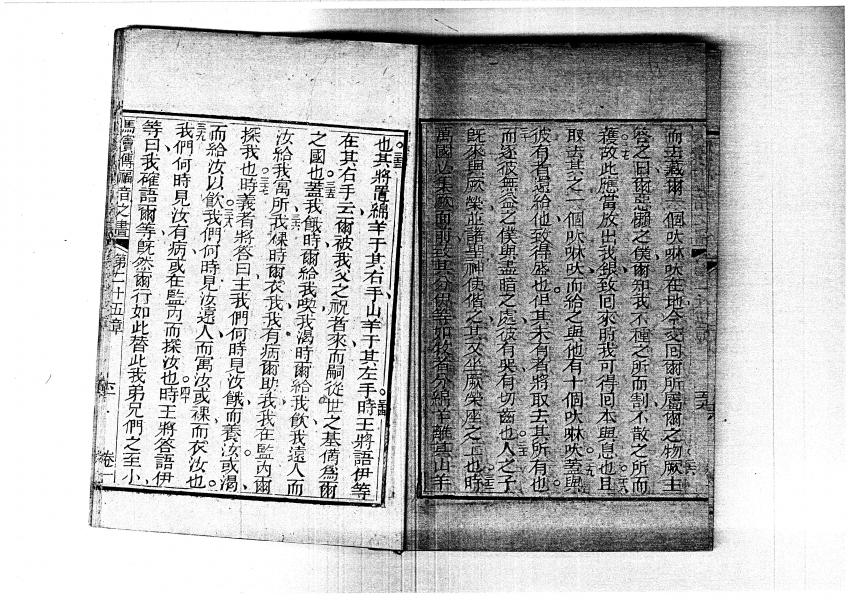 而去藏爾一個呔啉呔在地今交回爾所屬爾之物厥主
答之曰爾惡懶之僕爾知我不種之所而割不散之所而
穫故此應當放出我銀致回來時我可得回本與息也且
取去其之一個呔啉呔而給之與他有十個呔啉呔蓋與
彼有者還給他致得盛也但其未有者將取去其所有也
而逐彼無益之僕與盡暗之處彼有哭有切齒也人之子
既來與厥榮並諸聖神使偕之其交坐厥榮座之上也時
萬國必集厥面前致其分伊等如牧者分綿羊離其山羊
也三三其將置綿羊于其右手山羊于其左手三四時王將語伊等
在其右手云爾被我父之祝者來而嗣從世之基備為爾
之國也三五蓋我餓時爾給我喫我渴時爾給我飲我遠人而
汝給我寓所三六我裸時爾衣我我有病爾助我我在監內爾
探我也三七時義者將答曰主我們何時見汝餓而養汝或渴
而給汝以飲三八我們何時見汝遠人而寓汝或裸而衣汝也
三九我們何時見汝有病或在監內而探汝也四十時王將答語伊
等曰我確語爾等既然爾行如此替此我弟兄們之至小
馬竇傳福音之書 第二十五章 卷一